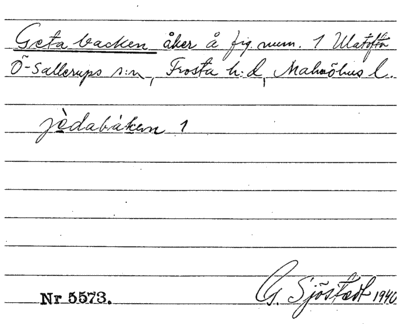 Getabacken åker å fig num. 1 Ulatofta
Ö-Sallerups s:n, Frosta h:d, Malmöhus l.
jèdabàken 1
Nr 5573.
G. Sjöstedt 1940.